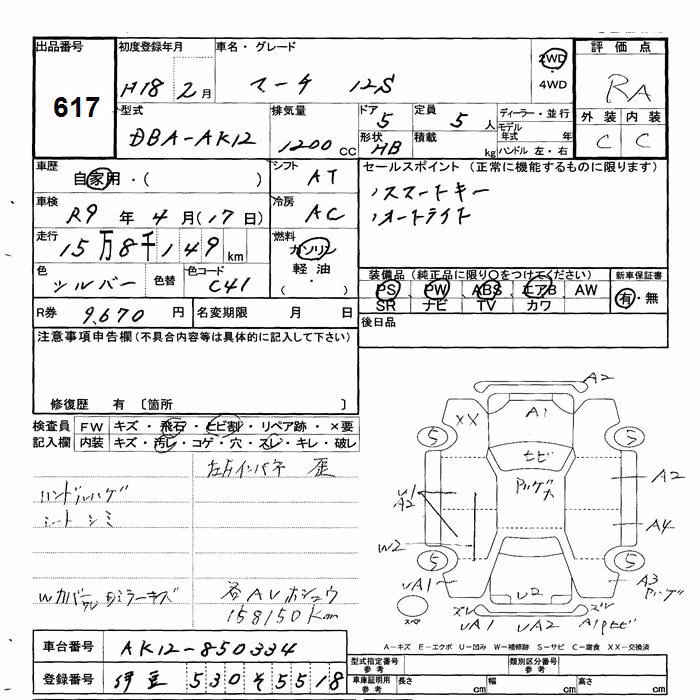 出品番号 初度登録年月 車名・グレード 評価点
617
H18 2月 マーチ 12S 2WD・4WD RA
型式 排気量 ドア 定員 ディーラー・並行 外装 内装
DBA-AK12 1200cc 5 5人 モデル年式 年 C C
形状 積載 ハンドル 左・右
HB kg
車歴 シフト セールスポイント(正常に機能するものに限ります)
自家用・( ) AT
車検 冷房
R9年4月(17日) AC オートライト
走行 燃料
15万8千149km ガソリン
軽油・( )
色 色替 色コード 装備品(純正品に限り○をつけてください) 新車保証書
シルバー C41 PS PW ABS エアB AW 有・無
SR ナビ TV カワ
R券 9,670円 名変期限 月 日 後日品
注意事項申告欄(不具合内容等は具体的に記入して下さい)
修復歴 有〔箇所 〕
検査員記入欄 FW キズ・飛石・ヒビ割・リペア跡・×要
内装 キズ・汚レ・コゲ・穴・スレ・キレ・破レ
ハンドルハゲ
シートシミ
158150Km
A2
XX A1
5 5
ヒビ
A2
A2
A4
W2
5 5
UA1 U2 A3
UA1 UA2
スペア
A-キズ E-エクボ U-凹み W-補修跡 S-サビ C-腐食 XX-交換済
車台番号 AK12-850334
登録番号 伊豆 530 そ 5518
型式指定番号 参考 類別区分番号 参考
車庫証明用 参考 長さ cm 幅 cm 高さ cm